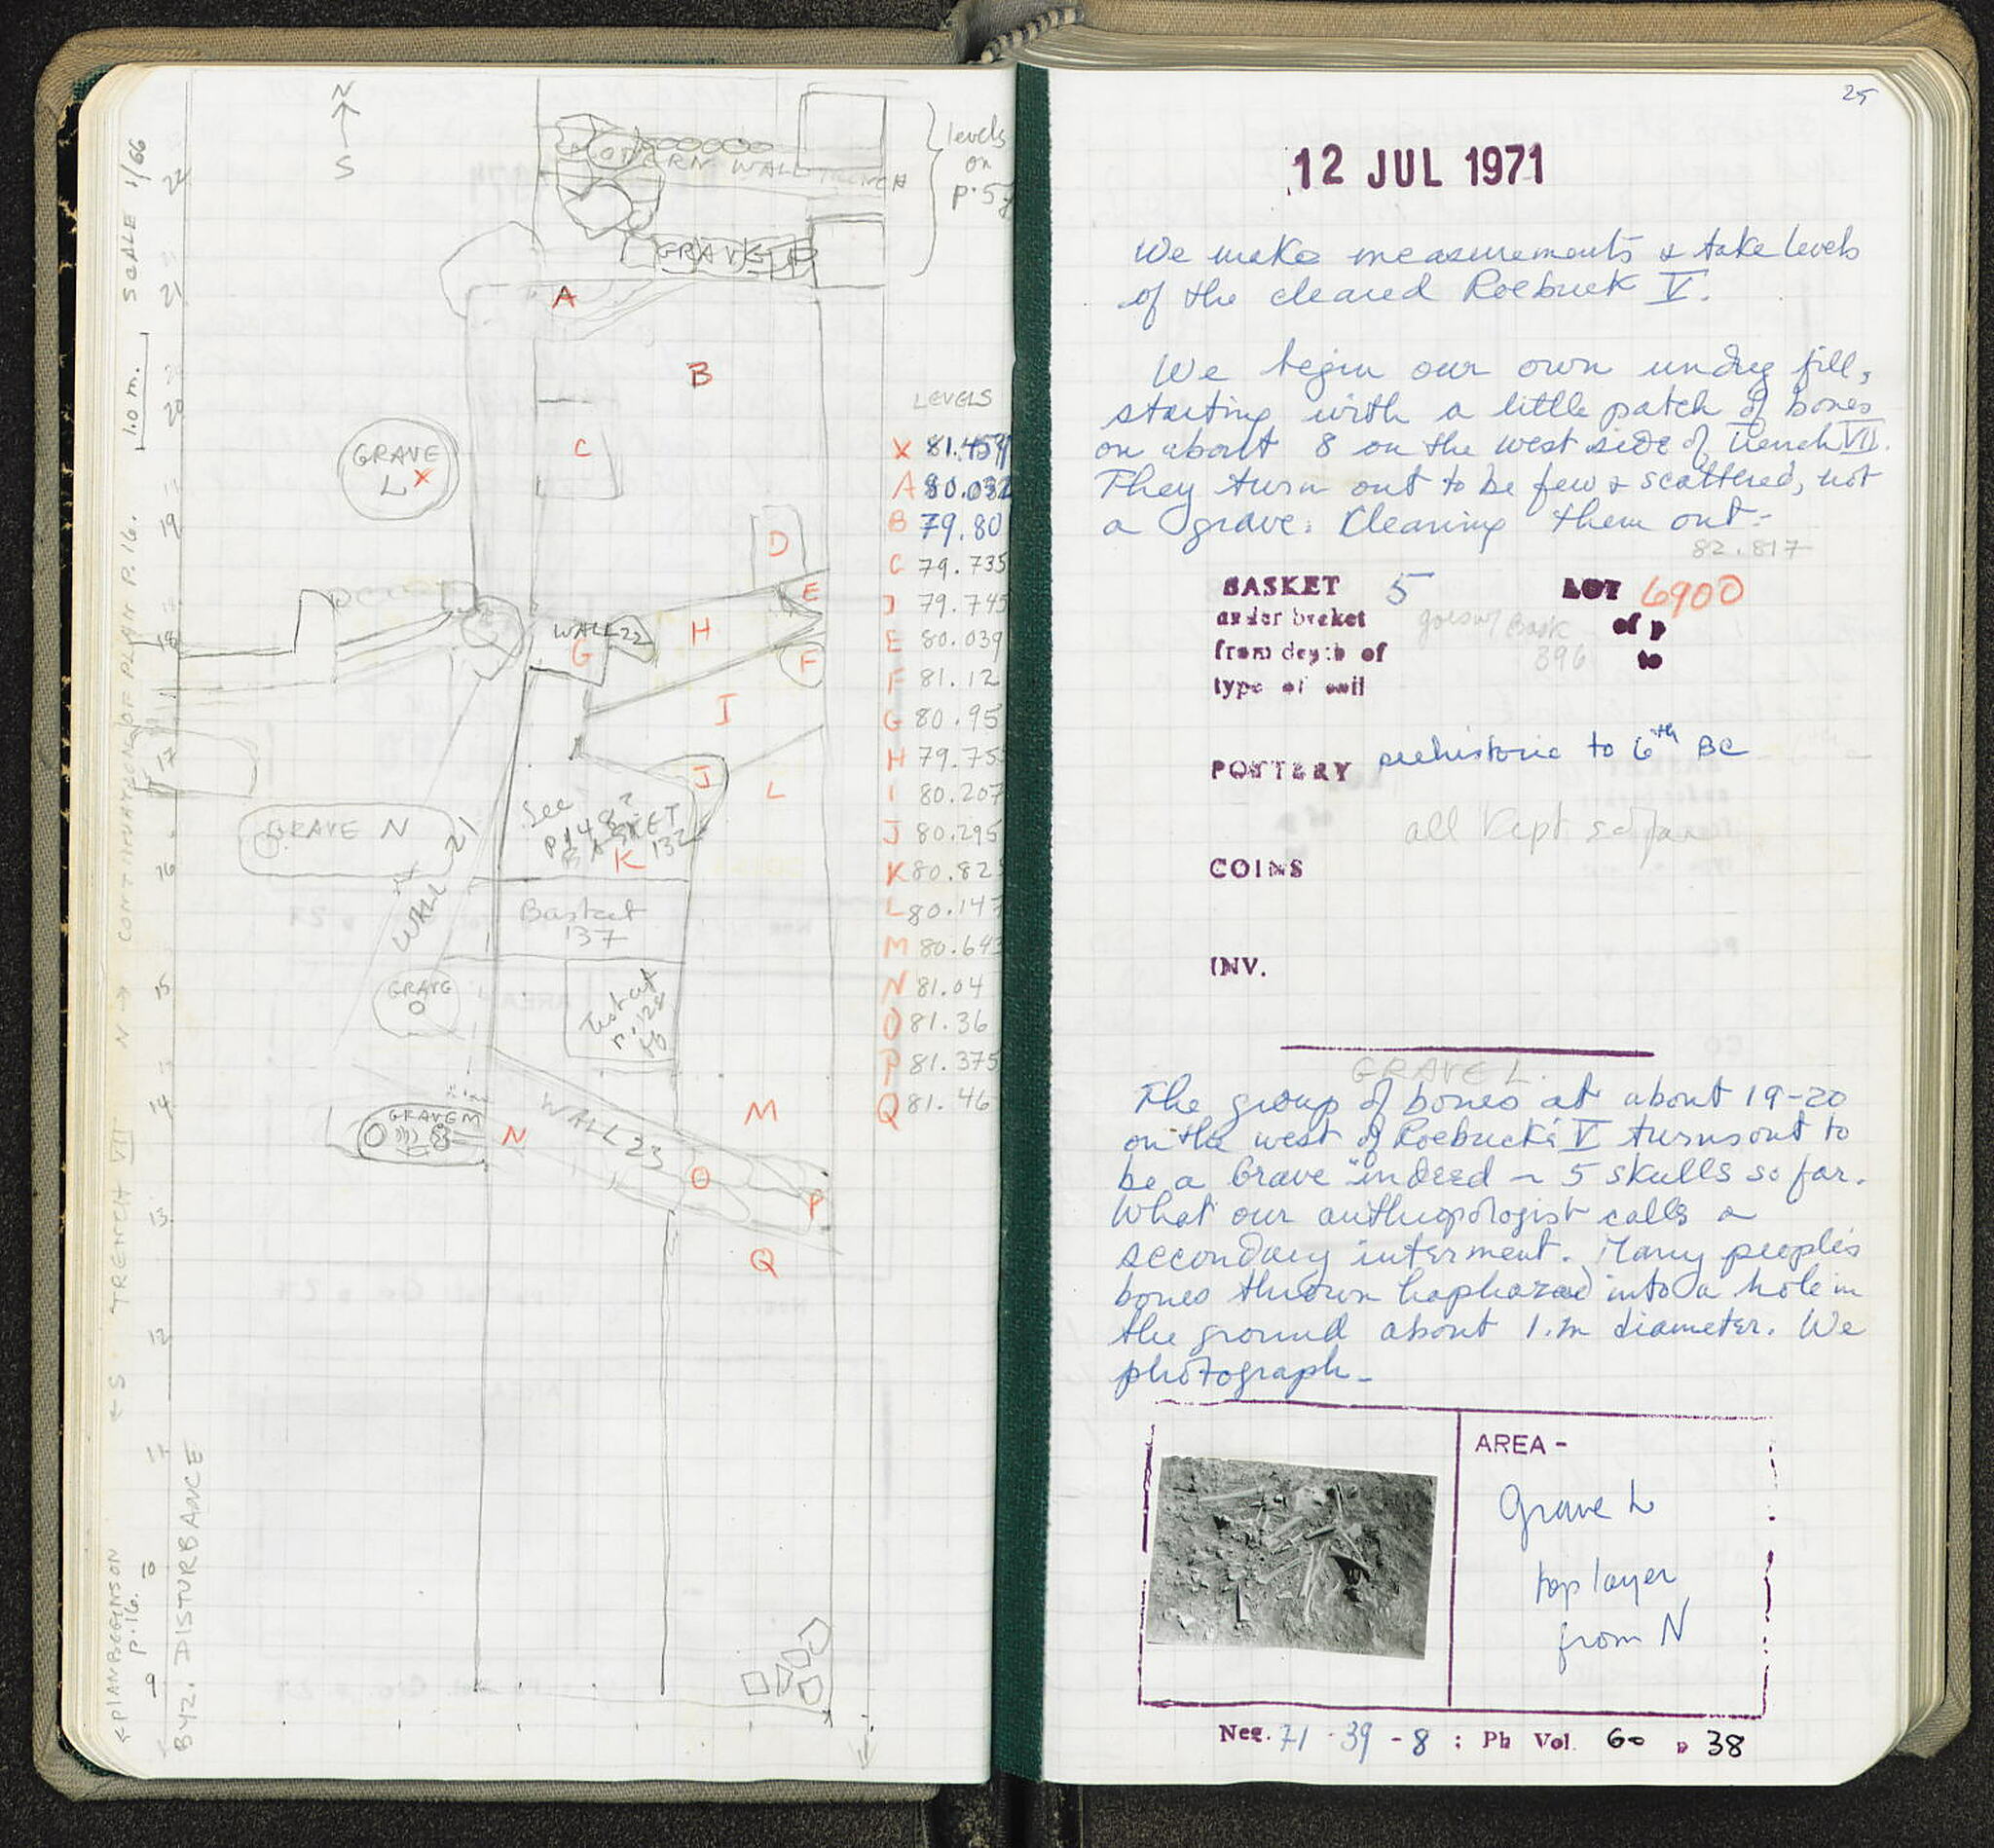 N
S
levels
on
p. 5
MODERN WALL TRENCH
GRAVE P
24
SCALE 1/66
21
A
B
1.0 m.
20
LEVELS
GRAVE
L X
C
X 81.459
A 80.032
19
B 79.80
D
C 79.735
E
D 79.745
WALL 22
H
18
G
E 80.039
F
F 81.12
I
G 80.95
17
H 79.75
J
L
I 80.207
See
p 148?
BASKET
132
J 80.295
GRAVE N
K
K 80.82
16
WALL 21
Basket
137
L 80.147
M 80.643
15
GRAVE
O
N 81.04
Test cut
p. 128
O 81.36
P 81.375
14
GRAVE M
N
WALL 23
M
Q 81.46
O
P
13
Q
12
11
10
9
← S TRENCH VII N → CONTINUATION OF PLAN P. 16.
← PLAN BEGINS ON
p. 16.
BYZ. DISTURBANCE
25
12 JUL 1971
We make measurements & take levels
of the cleared Roebuck V.
We begin our own undug fill,
starting with a little patch of bones
on about 8 on the west side of Trench VII.
They turn out to be few & scattered, not
a grave. Clearing them out:-
82.817
BASKET 5 LOT 6900
under basket of p
from depth of to
goes w/ Bask
396
type of soil
POTTERY prehistoric to 6th BC
all kept so far
COINS
INV.
GRAVE L.
The group of bones at about 19-20
on the west of Roebuck's V turns out to
be a Grave indeed ~ 5 skulls so far.
What our anthropologist calls a
secondary interment. Many people's
bones thrown haphazard into a hole in
the ground about 1.m diameter. We
photograph -
AREA -
Grave L
top layer
from N
Neg. 71 - 39 - 8 : Ph Vol. 60 p 38